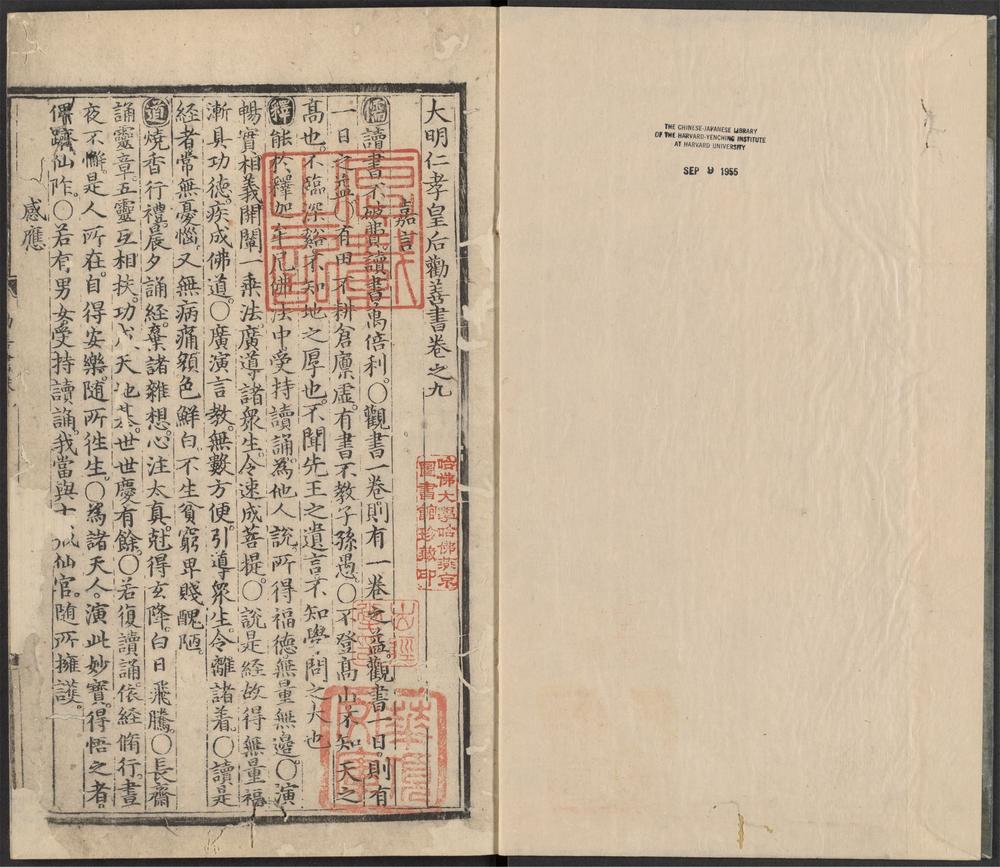 THE CHINESE-JAPANESE LIBRARY
OF THE HARVARD-YENCHING INSTITUTE
AT HARVARD UNIVERSITY
SEP 9 1955
大明仁孝皇后勸善書卷之九
嘉言
儒讀書不破費。讀書萬倍利。○觀書一卷。則有一卷之益。觀書一日。則有
一日之益。○有田不耕倉廩虛。有書不教子孫愚。○不登高山。不知天之
高也。不臨深谿。不知地之厚也。不聞先王之遺言。不知學問之大也
釋能於釋迦牟尼佛法中。受持讀誦。為他人說。所得福德無量無邊。○演
暢實相義。開闡一乘法。廣導諸眾生。令速成菩提。○說是経故得無量福
漸具功德。疾成佛道。○廣演言教。無數方便。引導眾生。令離諸着。○讀是
経者常無憂惱。又無病痛。顏色鮮白。不生貧窮卑賤醜陋。
道燒香行禮。晨夕誦經。棄諸雜想。心注太真。尅得玄降。白日飛騰。○長齋
誦靈章。五靈互相扶。功 天 世世慶有餘。○若復讀誦。依經脩行。晝
夜不懈。是人所在。自得安樂。随所徃生。○為諸天人。演此妙寶。得悟之者。
俱躋仙阼。○若有男女受持讀誦。我當與十 仙官。随所擁護。
感應
哈佛大學哈佛燕京
圖書館珍藏印